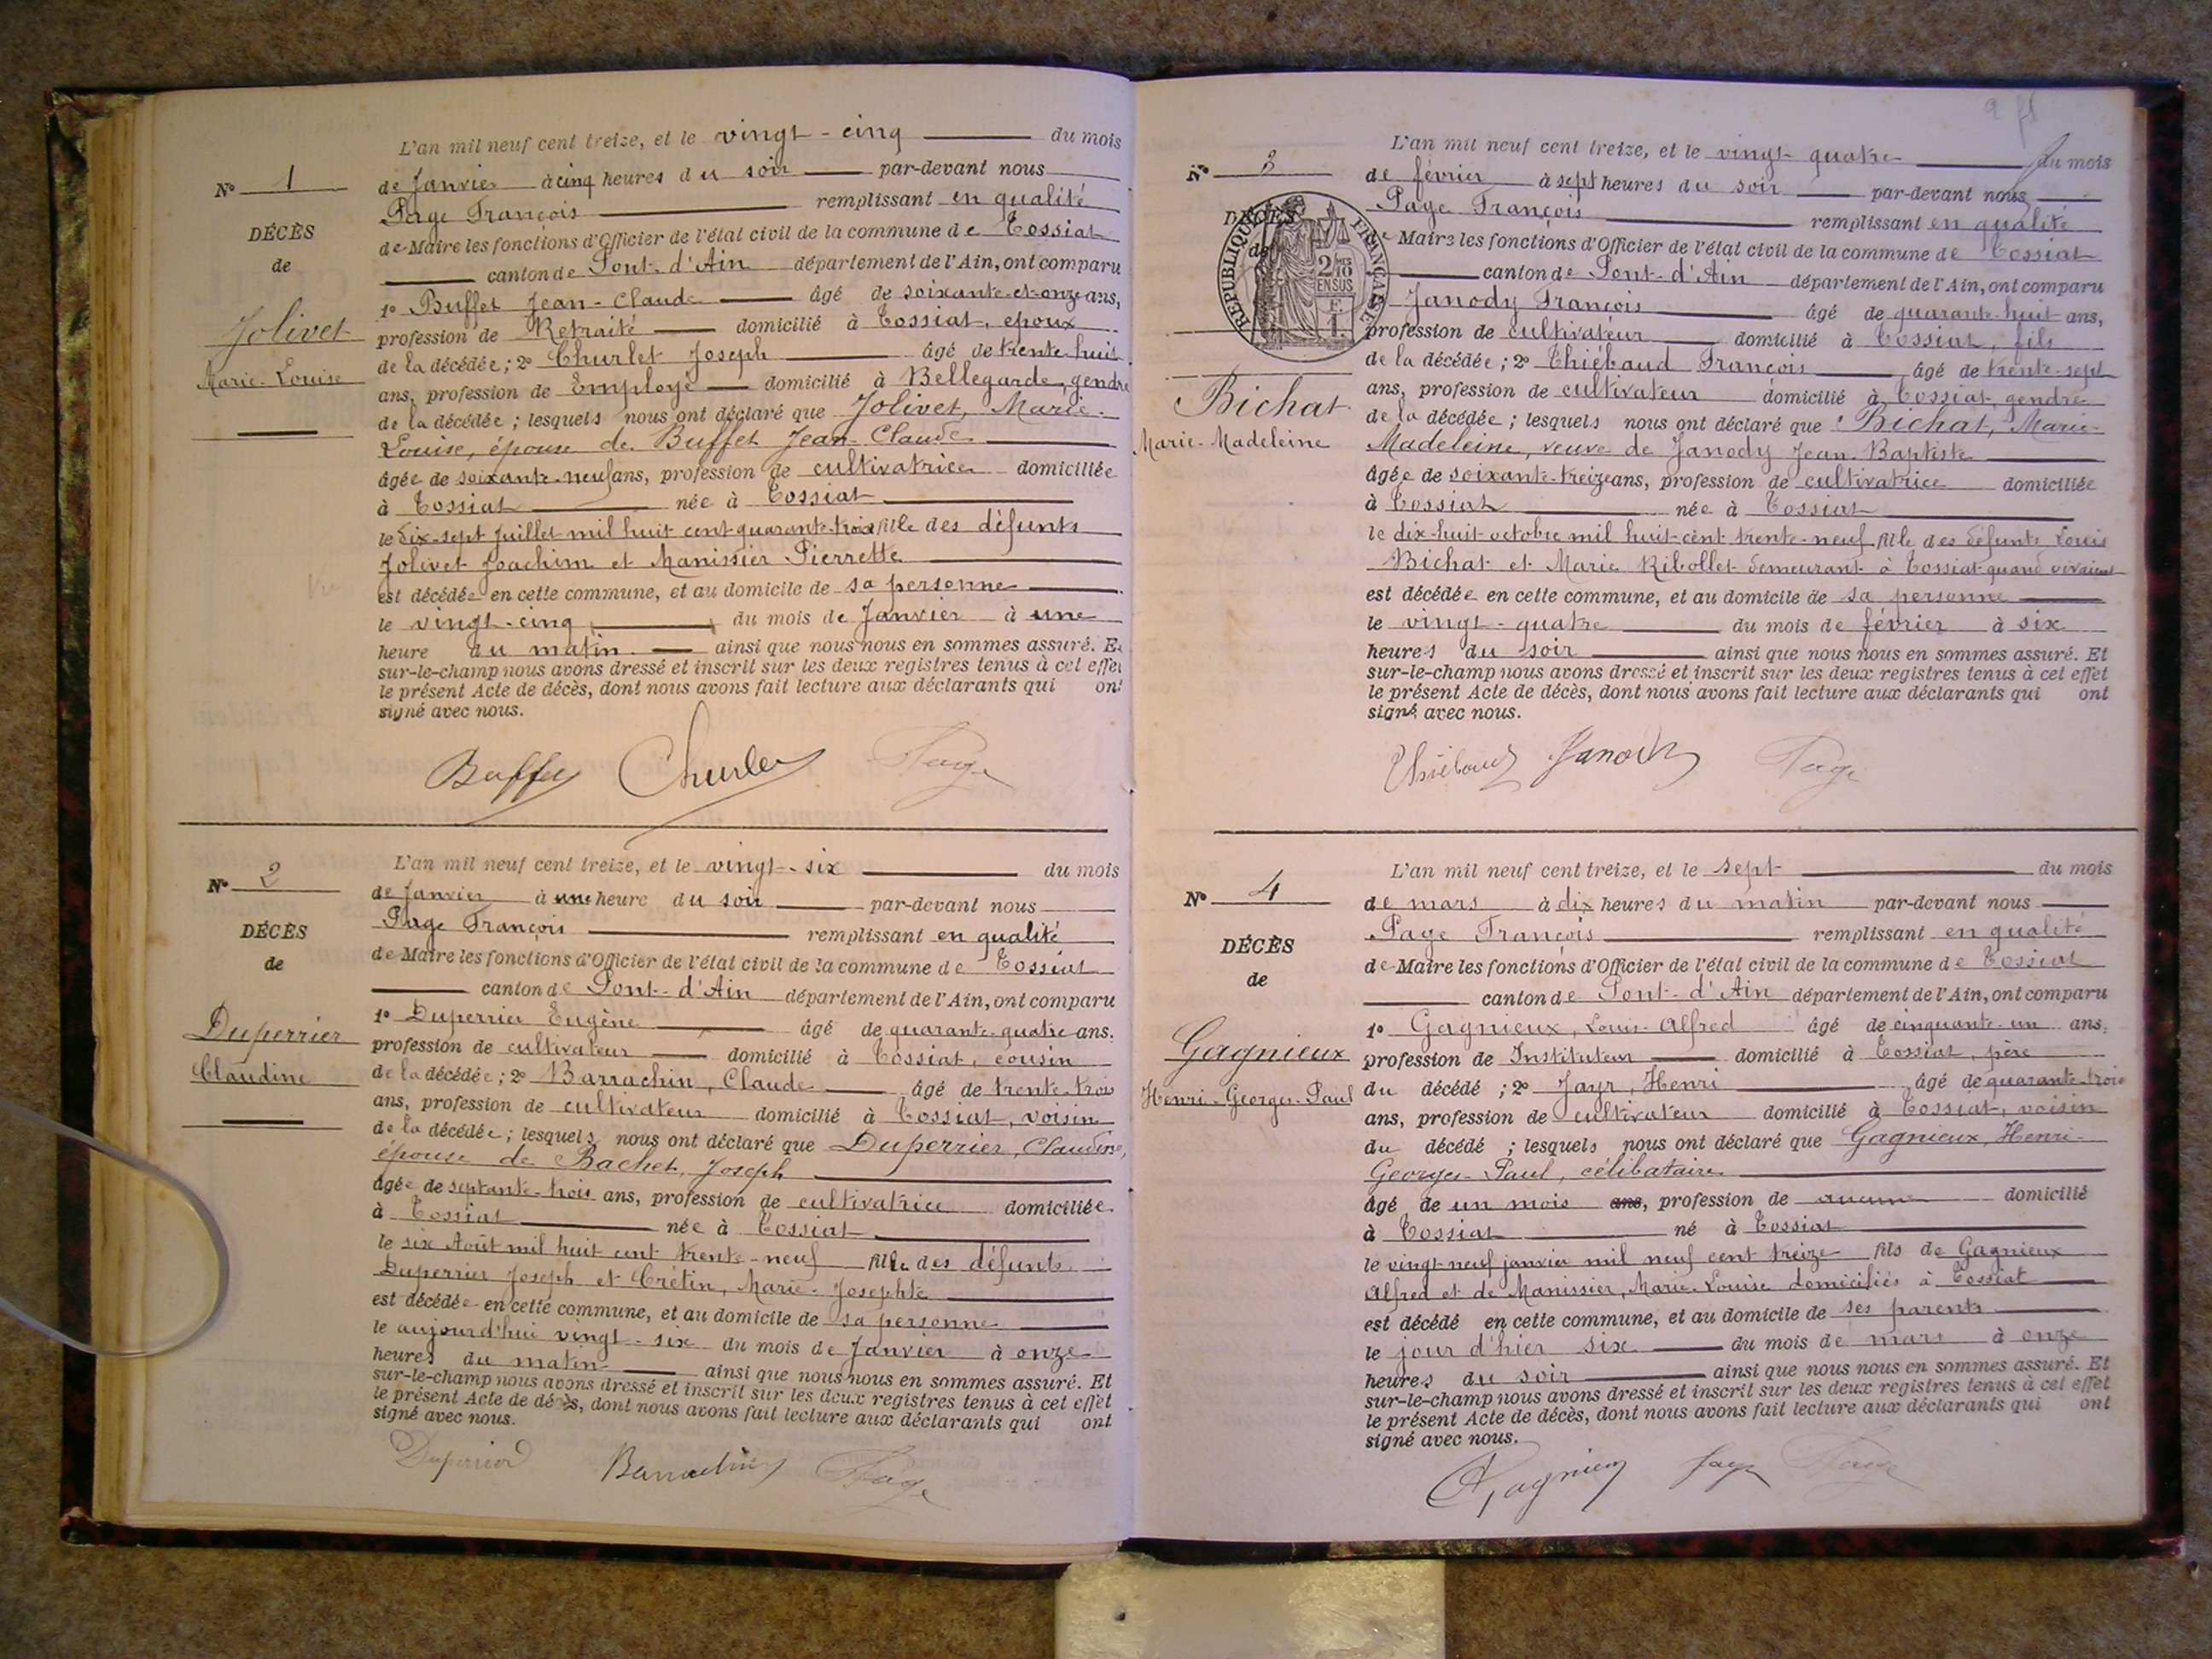 N° 1
DÉCÈS
de
Jolivet
Marie-Louise
L'an mil neuf cent treize, et le vingt-cinq du mois
de Janvier à cinq heures du soir par-devant nous
Page François remplissant en qualité
de Maire les fonctions d'Officier de l'état civil de la commune de Tossiat
canton de Pont-d'Ain département de l'Ain, ont comparu
1° Buffet Jean-Claude âgé de soixante-et-onze ans,
profession de Retraité domicilié à Tossiat, époux
de la décédée ; 2° Churlet Joseph âgé de trente huit
ans, profession de Employé domicilié à Bellegarde, gendre
de la décédée ; lesquels nous ont déclaré que Jolivet, Marie-
Louise, épouse de Buffet Jean-Claude
âgée de soixante-neuf ans, profession de cultivatrice domiciliée
à Tossiat née à Tossiat
le dix-sept Juillet mil huit cent quarante-trois fille des défunts
Jolivet Joachim et Manissier Pierrette
est décédée en cette commune, et au domicile de sa personne
le vingt-cinq du mois de Janvier à une
heure du matin ainsi que nous nous en sommes assuré. Et
sur-le-champ nous avons dressé et inscrit sur les deux registres tenus à cet effet
le présent Acte de décès, dont nous avons fait lecture aux déclarants qui ont
signé avec nous.
Buffet Churlet Page
N° 2
DÉCÈS
de
Duperrier
Claudine
L'an mil neuf cent treize, et le vingt-six du mois
de Janvier à une heure du soir par-devant nous
Page François remplissant en qualité
de Maire les fonctions d'Officier de l'état civil de la commune de Tossiat
canton de Pont-d'Ain département de l'Ain, ont comparu
1° Duperrier Eugène âgé de quarante-quatre ans.
profession de cultivateur domicilié à Tossiat, cousin
de la décédée ; 2° Barrachin, Claude âgé de trente-trois
ans, profession de cultivateur domicilié à Tossiat, voisin
de la décédée ; lesquels nous ont déclaré que Duperrier, Claudine,
épouse de Bachet, Joseph
âgée de septante-trois ans, profession de cultivatrice domiciliée
à Tossiat née à Tossiat
le six Août mil huit cent trente-neuf fille des défunts
Duperrier Joseph et Crétin, Marie-Josephte
est décédée en cette commune, et au domicile de sa personne
le aujourd'hui vingt-six du mois de Janvier à onze
heures du matin ainsi que nous nous en sommes assuré. Et
sur-le-champ nous avons dressé et inscrit sur les deux registres tenus à cet effet
le présent Acte de décès, dont nous avons fait lecture aux déclarants qui ont
signé avec nous.
Duperrier Barrachin Page
N° 3
DÉCÈS
de
RÉPUBLIQUE FRANÇAISE
Bichat
Marie-Madeleine
L'an mil neuf cent treize, et le vingt-quatre du mois
de février à sept heures du soir par-devant nous
Page François remplissant en qualité
de Maire les fonctions d'Officier de l'état civil de la commune de Tossiat
canton de Pont-d'Ain département de l'Ain, ont comparu
Janody François âgé de quarante-huit ans,
profession de cultivateur domicilié à Tossiat, fils
de la décédée ; 2° Thiébaud François âgé de trente-sept
ans, profession de cultivateur domicilié à Tossiat, gendre
de la décédée ; lesquels nous ont déclaré que Bichat, Marie-
Madeleine, veuve de Janody Jean-Baptiste
âgée de soixante-treize ans, profession de cultivatrice domiciliée
à Tossiat née à Tossiat
le dix-huit octobre mil huit-cent trente-neuf fille des défunts Louis
Bichat et Marie Ribollet demeurant à Tossiat quand vivaient
est décédée en cette commune, et au domicile de sa personne
le vingt-quatre du mois de février à six
heures du soir ainsi que nous nous en sommes assuré. Et
sur-le-champ nous avons dressé et inscrit sur les deux registres tenus à cet effet
le présent Acte de décès, dont nous avons fait lecture aux déclarants qui ont
signé avec nous.
Thiébaud Janody Page
N° 4
DÉCÈS
de
Gagnieux
Henri-Georges-Paul
L'an mil neuf cent treize, et le sept du mois
de mars à dix heures du matin par-devant nous
Page François remplissant en qualité
de Maire les fonctions d'Officier de l'état civil de la commune de Tossiat
canton de Pont-d'Ain département de l'Ain, ont comparu
1° Gagnieux, Louis-Alfred âgé de cinquante-un ans,
profession de Instituteur domicilié à Tossiat, père
du décédé ; 2° Jayr, Henri âgé de quarante-trois
ans, profession de cultivateur domicilié à Tossiat, voisin
du décédé ; lesquels nous ont déclaré que Gagnieux, Henri-
Georges-Paul, célibataire
âgé de un mois ans, profession de aucune domicilié
à Tossiat né à Tossiat
le vingt-neuf janvier mil neuf cent treize fils de Gagnieux
Alfred et de Manissier, Marie-Louise domiciliés à Tossiat
est décédé en cette commune, et au domicile de ses parents
le jour d'hier six du mois de mars à onze
heures du soir ainsi que nous nous en sommes assuré. Et
sur-le-champ nous avons dressé et inscrit sur les deux registres tenus à cet effet
le présent Acte de décès, dont nous avons fait lecture aux déclarants qui ont
signé avec nous.
Gagnieux Jayr Page